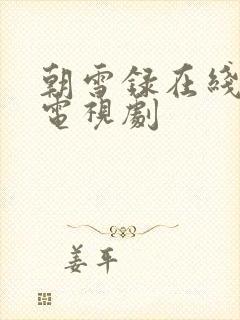 朝雪録在綫
電視劇
姜平